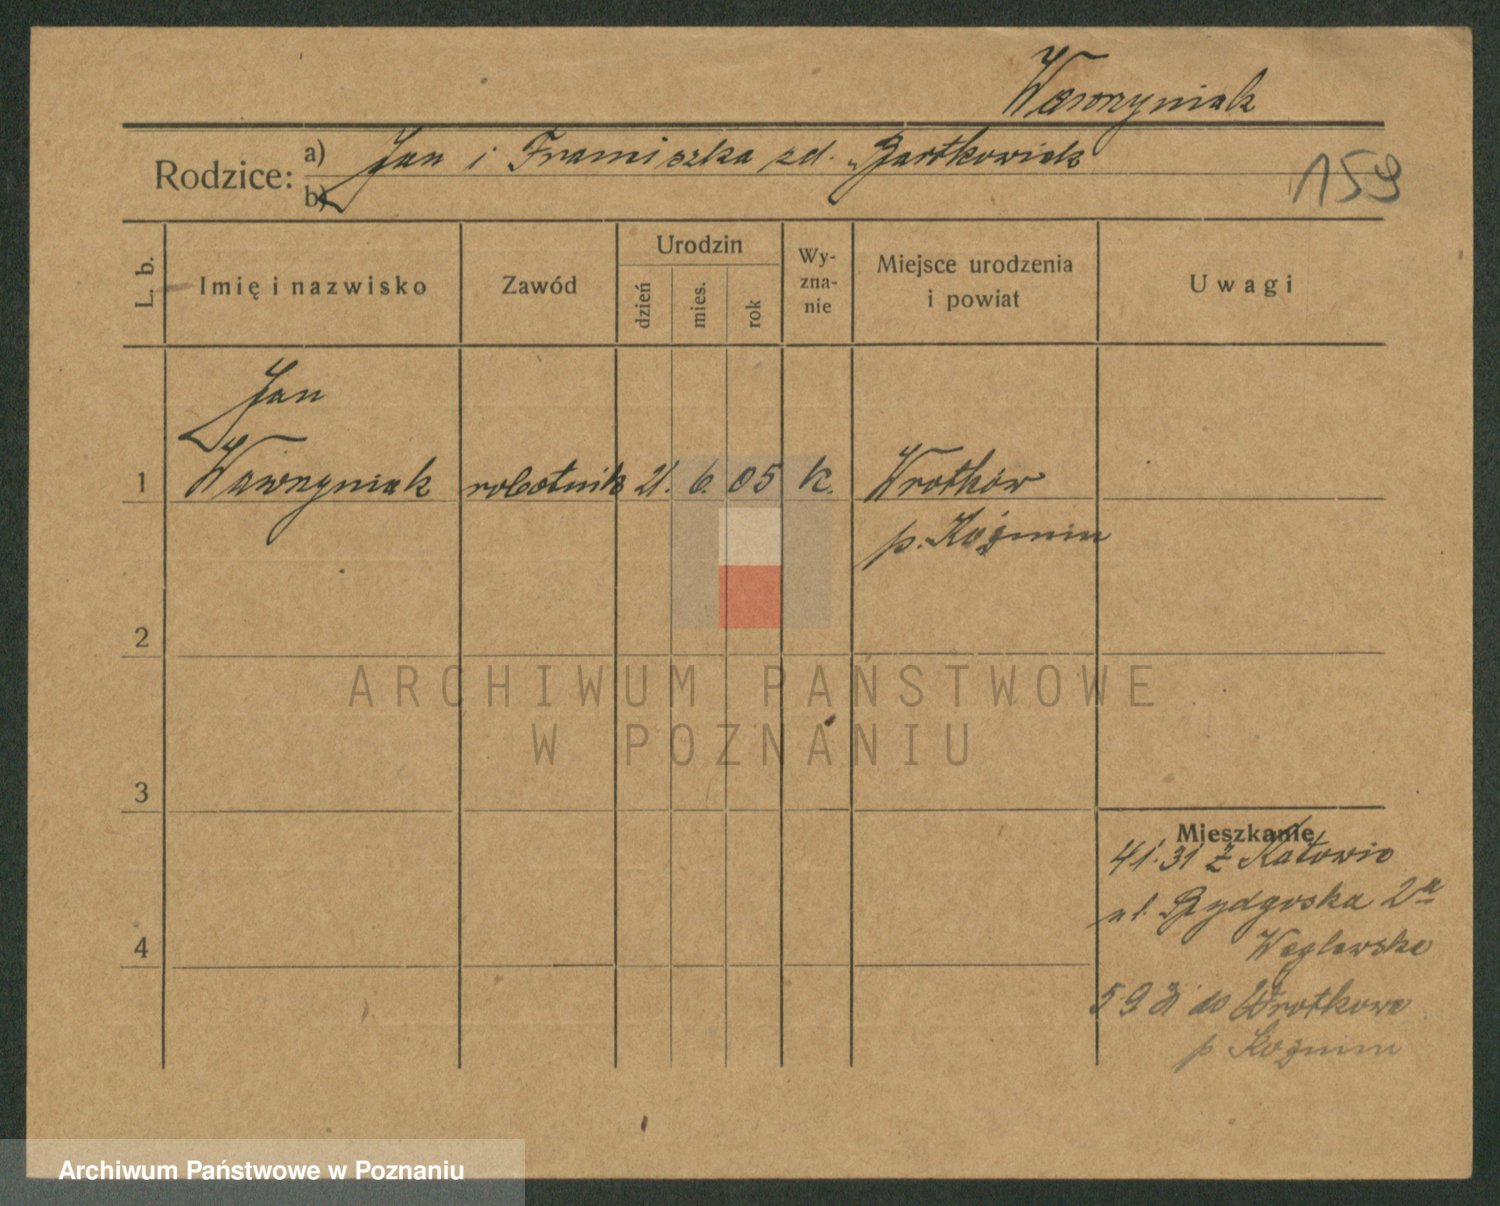 Wawrzyniak
Rodzice: a) Jan i Franciszka zd. Bartkowiak
b)
159
L. b.
Imię i nazwisko
Zawód
Urodzin
dzień
mies.
rok
Wy-
zna-
nie
Miejsce urodzenia
i powiat
Uwagi
Jan
1 Wawrzyniak robotnik 21. 6. 05 k. Wrotków
p. Koźmin
2
3
4
Mieszkanie
4 1. 31 z Katowic
ul. Bydgoska 2a
5 9 31 do Wrotkowa
p Koźmin
ARCHIWUM PAŃSTWOWE
W POZNANIU
Archiwum Państwowe w Poznaniu